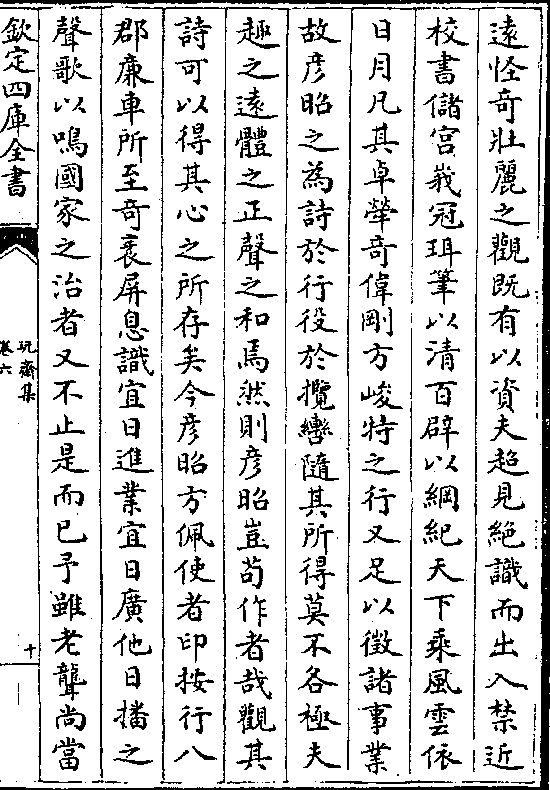 遠怪奇壯麗之觀既有以資夫超見絶識而出入禁近
校書儲宫峩冠珥筆以清百辟以綱紀天下乘風雲依
日月凡其卓犖奇偉剛方峻特之行又足以徴諸事業
故彦昭之為詩於行役於攬轡隨其所得莫不各極夫
趣之遠體之正聲之和焉然則彦昭豈苟作者哉觀其
詩可以得其心之所存矣今彦昭方佩使者印按行八
郡亷車所至奇衺屏息識宜日進業宜日廣他日播之
聲歌以鳴國家之治者又不止是而已予雖老聾尚當
欽定四庫全書
玩齋集
卷六
十